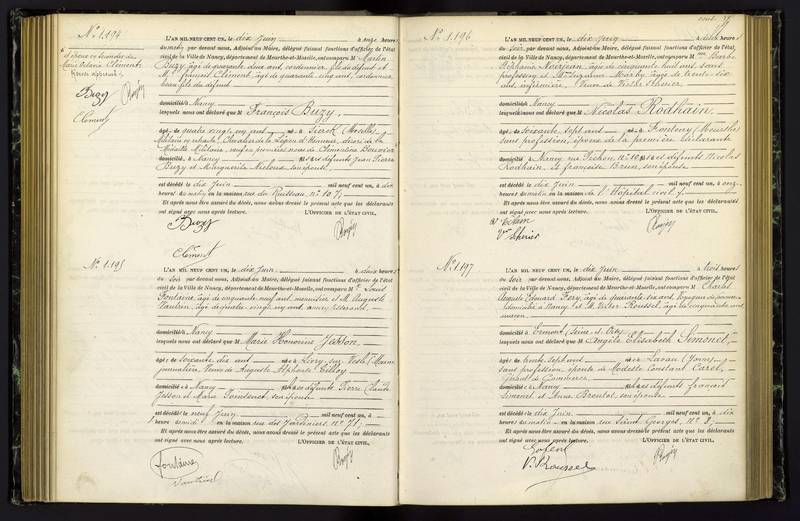 N° 1.194
L'AN MIL NEUF CENT UN, le dix Juin à onze heures
du matin par devant nous, Adjoint au Maire, délégué faisant fonctions d'officier de l'état
civil de la Ville de Nancy, département de Meurthe-et-Moselle, ont comparu M.
Buzy, âgé de quarante deux ans, cordonnier, fils du défunt et
M. François Clément, âgé de quarante cinq ans, cordonnier,
beau fils du défunt
domiciliés à Nancy
lesquels nous ont déclaré que M François Buzy,
âgé de quatre vingt un ans né à Sierck (Moselle)
Militaire en retraite, Chevalier de la Légion d'Honneur, décoré de la
Médaille Militaire, veuf en premières noces de Clémentine
domicilié à Nancy fils des défunts Jean Pierre
Buzy et Marguerite
est décédé le dix Juin mil neuf cent un, à dix
heures du matin en la maison rue du Ruisseau, n° 107,
Et après nous être assuré du décès, nous avons dressé le présent acte que les déclarants
ont signé avec nous après lecture. L'OFFICIER DE L'ÉTAT CIVIL,
Buzy
Clément
N° 1.195
L'AN MIL NEUF CENT UN, le dix Juin à deux heures
du soir par devant nous, Adjoint au Maire, délégué faisant fonctions d'officier de l'état
civil de la Ville de Nancy, département de Meurthe-et-Moselle, ont comparu M. Louis
Fontaine, âgé de cinquante neuf ans, menuisier et M. Auguste
Vautrin, âgé de quatre vingt un ans,
domiciliés à Nancy
lesquels nous ont déclaré que M Marie Honorine Jesson,
âgée de soixante dix ans née à Livry sur Vesle (Marne)
journalière, Veuve de Auguste Alphonse
domiciliée à Nancy fille des défunts Pierre Claude
Jesson et Marie
est décédée le neuf Juin mil neuf cent un, à
heures en la maison rue des Jardiniers, n° 71,
Et après nous être assuré du décès, nous avons dressé le présent acte que les déclarants
ont signé avec nous après lecture. L'OFFICIER DE L'ÉTAT CIVIL,
Fontaine
Vautrin
N° 1.196
L'AN MIL NEUF CENT UN, le dix Juin à deux heures
du soir, par devant nous, Adjoint au Maire, délégué faisant fonctions d'officier de l'état
civil de la Ville de Nancy, département de Meurthe-et-Moselle, ont comparu Mme Barbe
Stéphanie Noirjean, âgée de cinquante huit ans, sans
profession et Mme Suzanne Marby, âgée de trente six
ans, infirmière, Veuve de Victor
domiciliées à Nancy
lesquels nous ont déclaré que M Nicolas Rodhain,
âgé de soixante sept ans né à Fontenoy (Meurthe)
sans profession, époux de la première déclarante
domicilié à Nancy, rue Pichon, n° 10 fils des défunts Nicolas
Rodhain, et Françoise Brun, son épouse
est décédé le dix Juin mil neuf cent un, à onze
heures du matin en la maison de l'Hôpital civil
Et après nous être assuré du décès, nous avons dressé le présent acte que les déclarants
ont signé avec nous après lecture. L'OFFICIER DE L'ÉTAT CIVIL,
N° 1.197
L'AN MIL NEUF CENT UN, le dix Juin à trois heures
du soir, par devant nous, Adjoint au Maire, délégué faisant fonctions d'officier de l'état
civil de la Ville de Nancy, département de Meurthe-et-Moselle, ont comparu M. Charles
Auguste Edouard Fery, âgé de quarante six ans, Voyageur de commerce
domicilié à Nancy et M. Victor Roussel, âgé de cinquante ans
maçon
domicilié à Ermont, (Seine et Oise)
lesquels nous ont déclaré que M Angèle Elisabeth Simonet,
âgée de trente sept ans née à Lavau (Yonne)
sans profession, épouse de Modeste Constant Carel,
de Commerce
domiciliée à Nancy fille des défunts François
Simonet et Anna son épouse
est décédée le dix Juin mil neuf cent un, à dix
heures du matin en la maison rue Saint Georges, n° 8,
Et après nous être assuré du décès, nous avons dressé le présent acte que les déclarants
ont signé avec nous après lecture. L'OFFICIER DE L'ÉTAT CIVIL,
V. Roussel